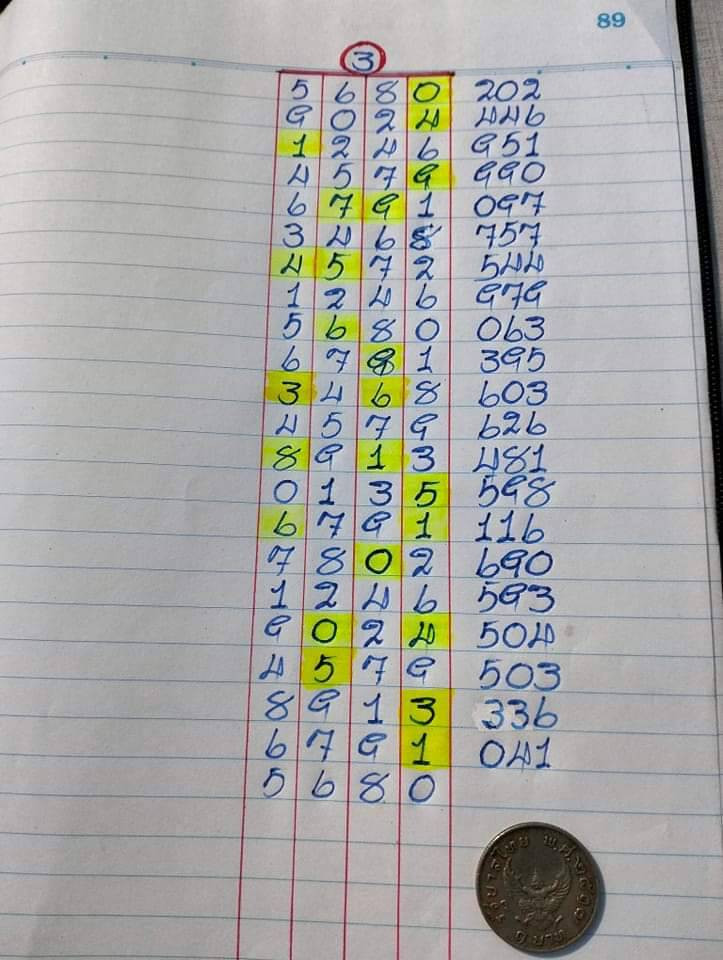 89
3
5 6 8 0 202
9 0 2 4 446
1 2 4 6 951
4 5 7 9 990
6 7 9 1 097
3 4 6 8 757
4 5 7 2 544
1 2 4 6 979
5 6 8 0 063
6 7 9 1 395
3 4 6 8 603
4 5 7 9 626
8 9 1 3 481
0 1 3 5 598
6 7 9 1 116
7 8 0 2 690
1 2 4 6 593
9 0 2 4 504
4 5 7 9 503
8 9 1 3 336
6 7 9 1 041
5 6 8 0
รัฐบาลไทย พ.ศ.๒๕๑๗
๑ บาท